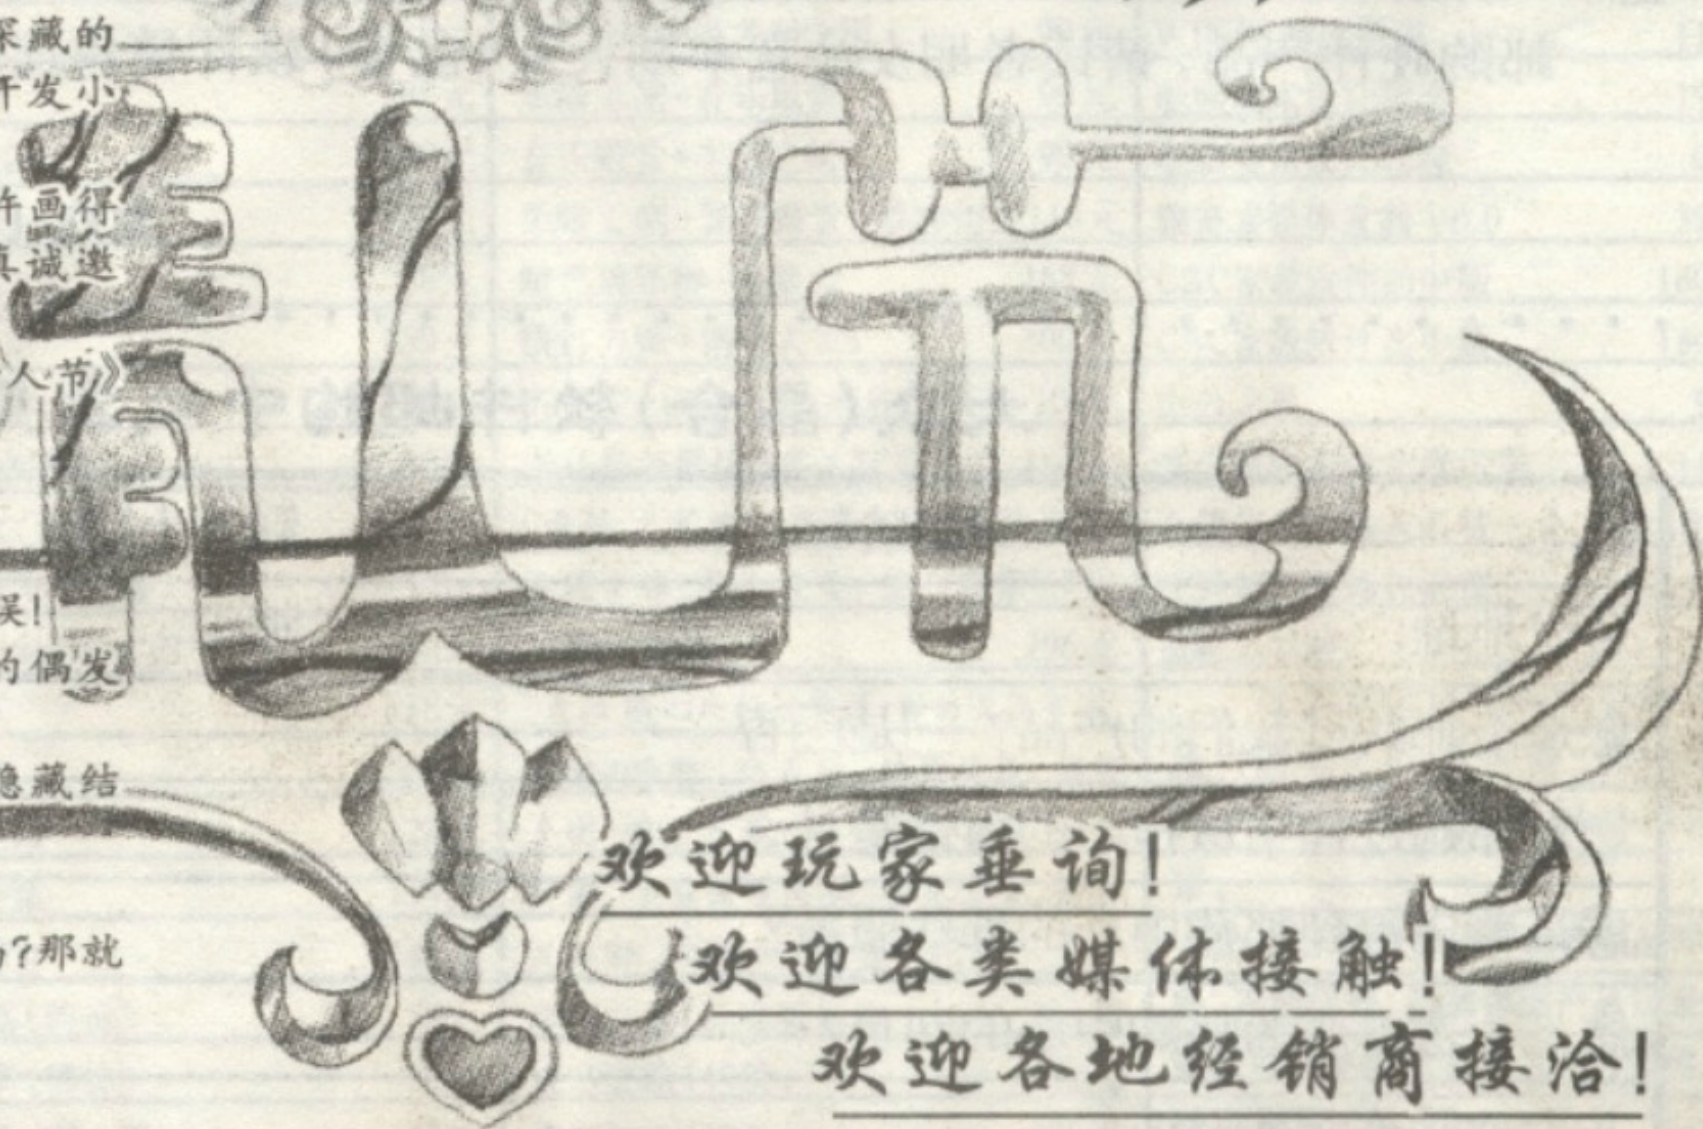 藏的
开发小
画得
真诚邀
人节》
人节
误!
的偶发
隐藏结
?那就
欢迎玩家垂询!
欢迎各类媒体接触!
欢迎各地经销商接洽!